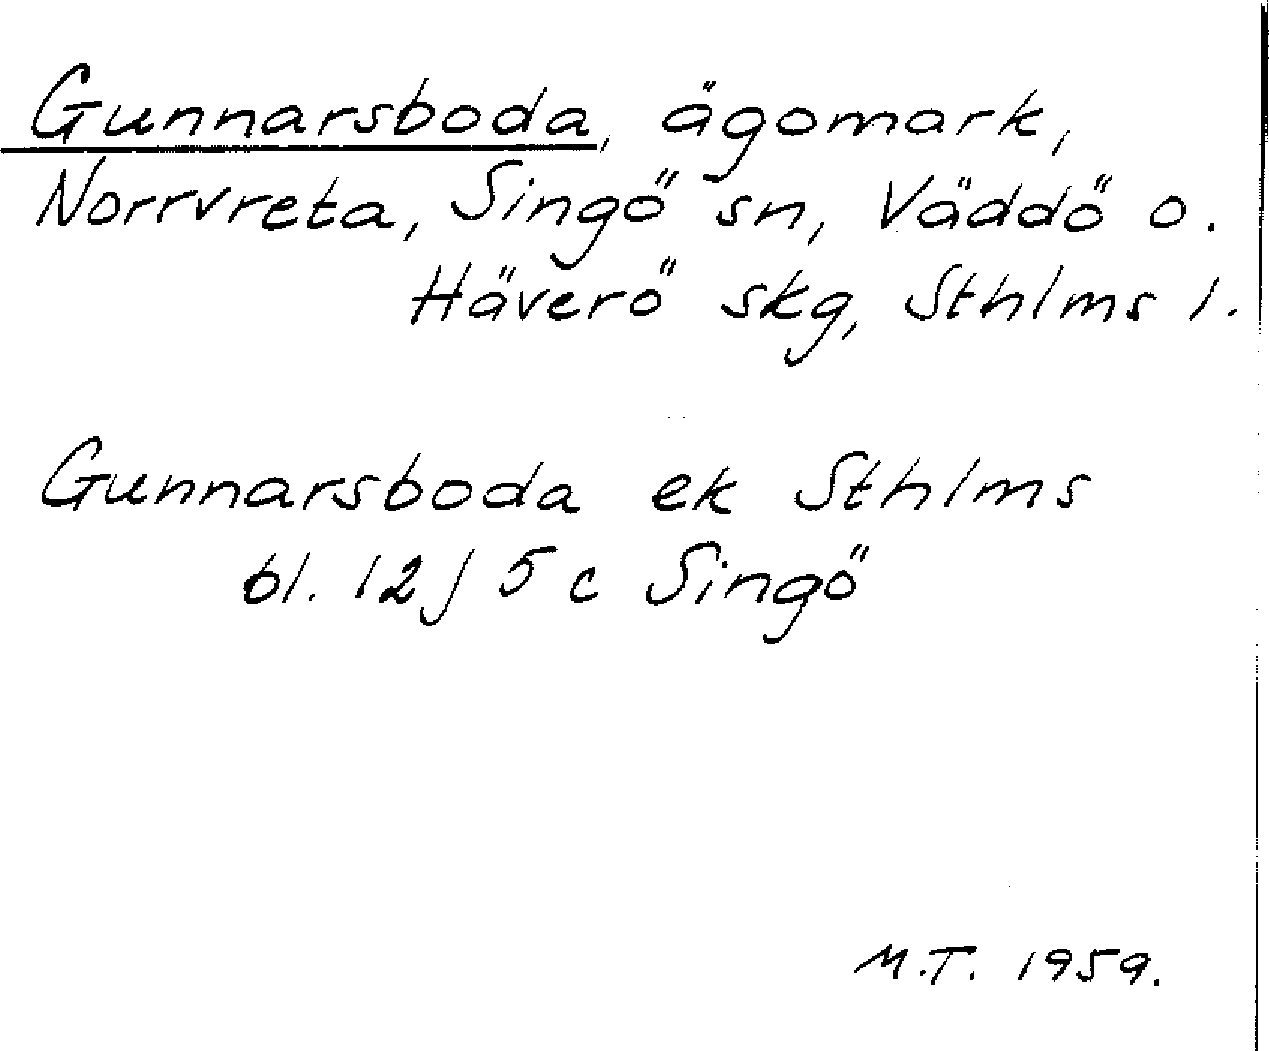 Gunnarsboda, ägomark,
Norrvreta, Singö sn, Väddö o.
Häverö skg, Sthlms l.
Gunnarsboda ek Sthlms
bl. 12J 5c Singö
M.T. 1959.